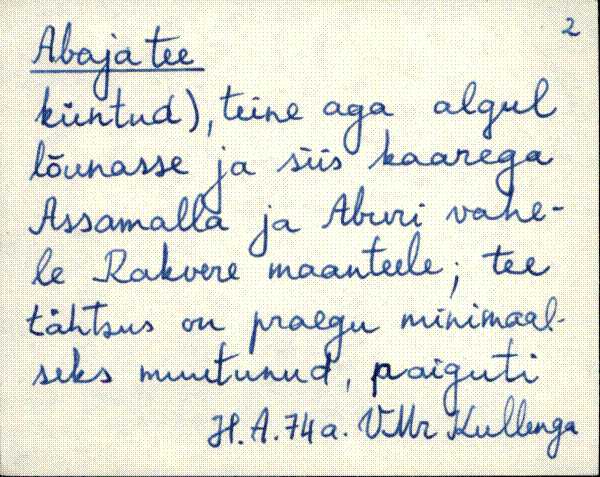 2
Abaja tee
küntud), teine aga algul
lõunasse ja siis kaarega
Assamalla ja Aburi vahe-
le Rakvere maanteele; tee
tähtsus on praegu minimaal-
seks muutunud, paiguti
H. A. 74 a. VMr Kullenga